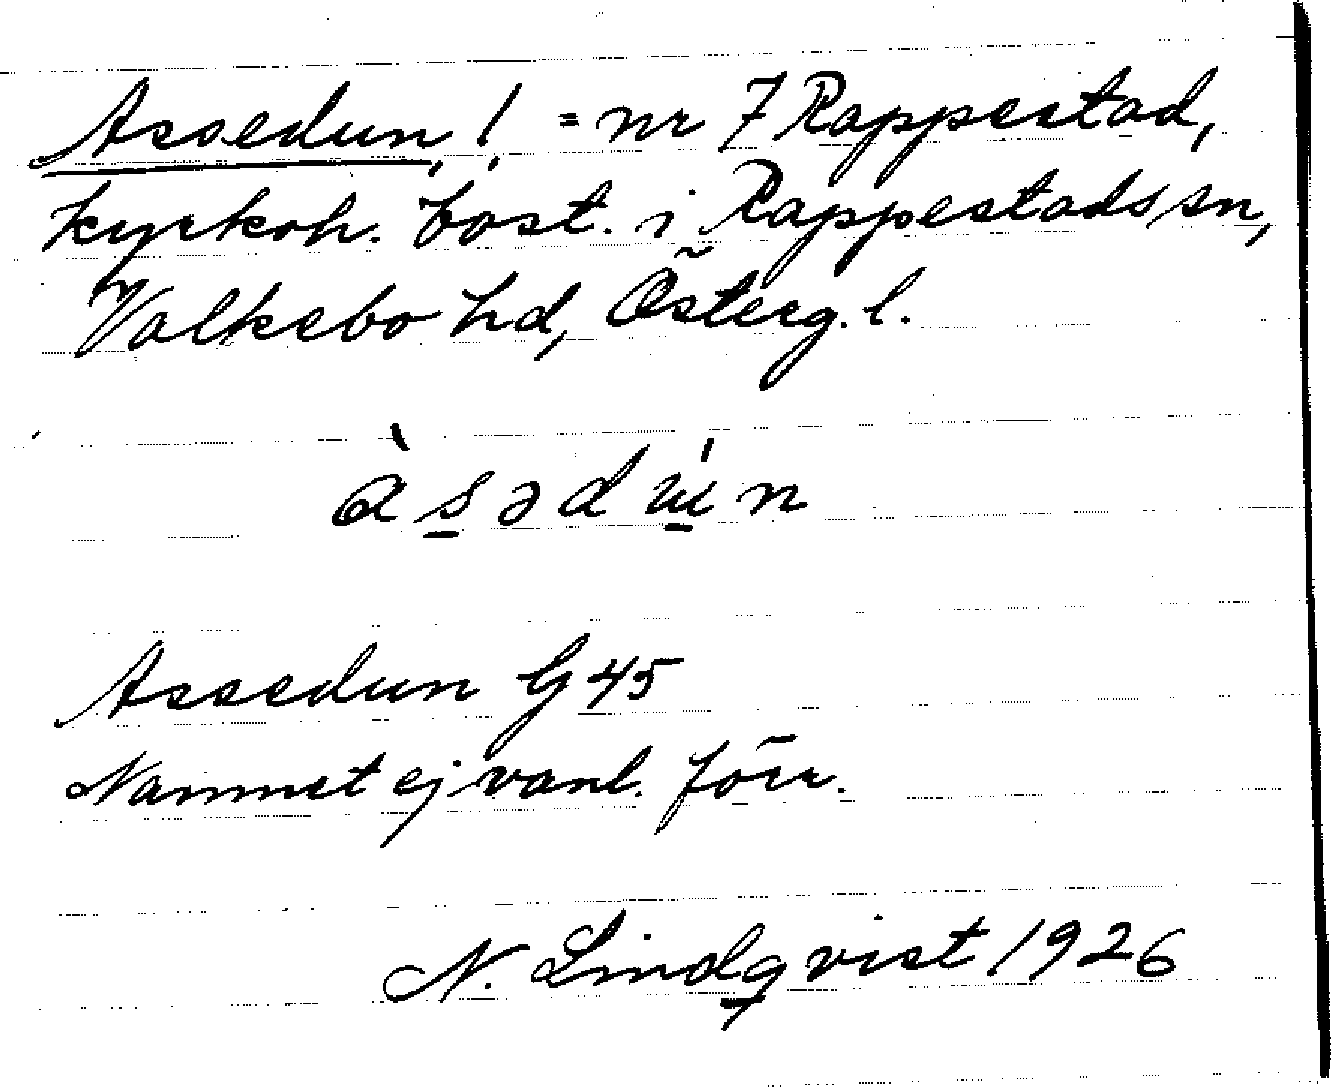 Assedun, ! = nr 7 Rappestad,
kyrkoh. bost. i Rappestads sn,
Valkebo hd, Österg. l.
àsədɯ́n
Assedun G 45
Namnet ej vanl. förr.
N. Lindqvist 1926